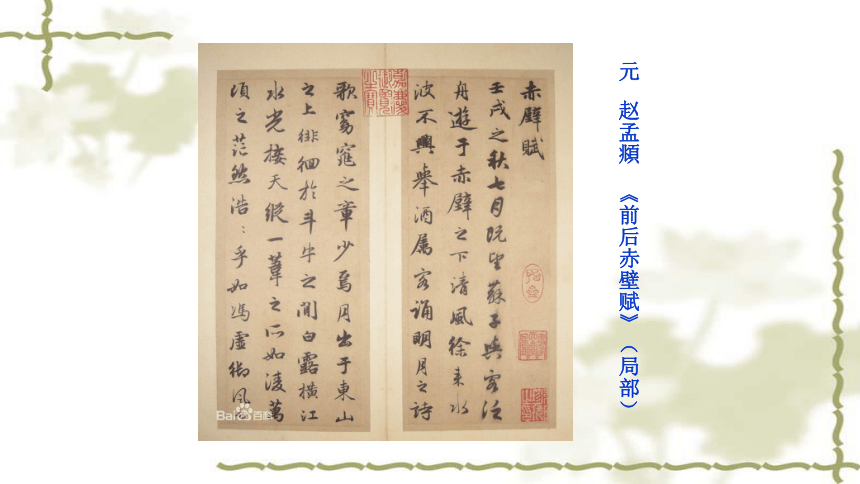 元 赵孟頫 《前后赤壁赋》（局部）
赤壁賦
壬戌之秋七月既望蘇子與客泛
舟遊于赤壁之下清風徐来水
波不興舉酒属客誦明月之詩
歌窈窕之章少焉月出于東山
之上徘徊於斗牛之間白露橫江
水光接天縱一葦之所如凌萬
頃之茫然浩〻乎如馮虛御風
Baidu百科